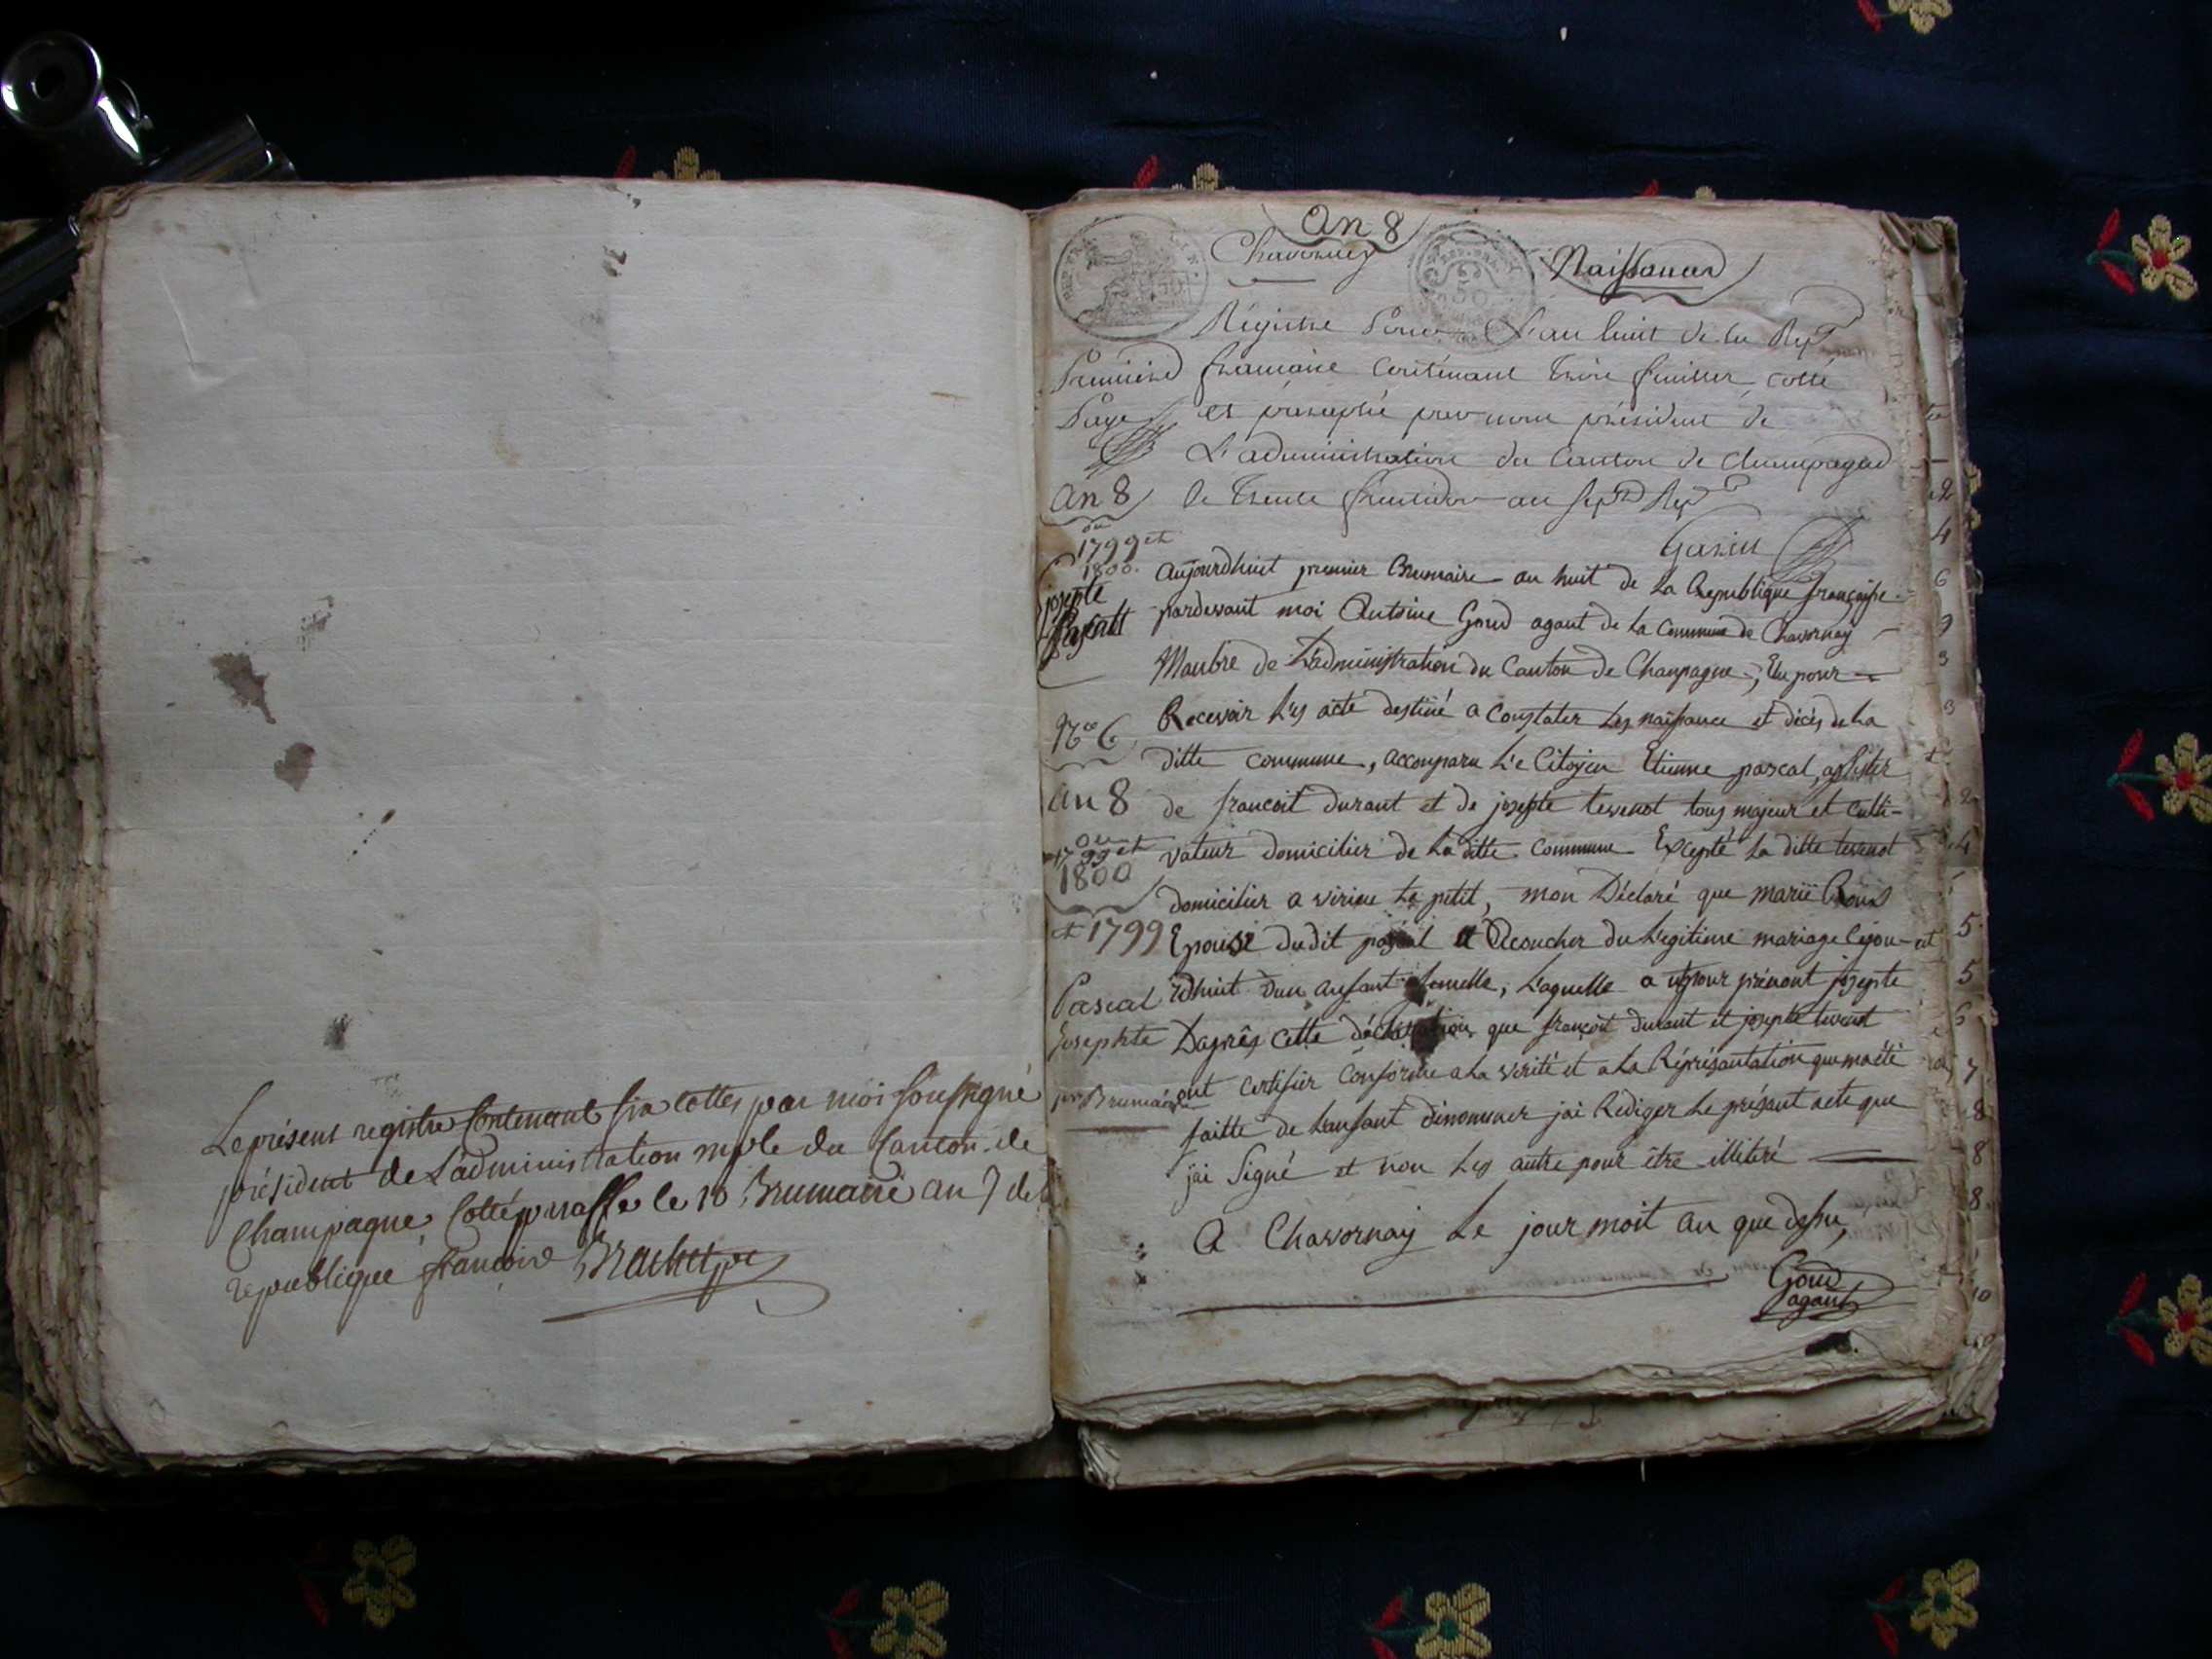 Le présent registre Contenant six cottes par moi soussigné
président de L'administration mple du Canton de
Champagne, Cotté paraffe le 10 Brumaire an 7 de la
republique francoise Brachet pt
An 8
Chavornay
Naissances
REP. FRA
50
Régistre Pour L'an huit de la Rep
Première
francaise Contenant Troire feuillet cotté
Page
et paraphé par nous président de
L'administration du Canton de Champagne
An 8
le Trente fructidor an sept Rep
ou
1799 et
1800.
Garin
josepte
Pascalt
Aujourdhuit premier Brumaire an huit de La Republique françoise
pardevant moi Antoine Goud agant de La Commune de Chavornay
Manbre de L'administration du Canton de Chanpagne, Elu pour
No 6
Recevoir L'es acte destiné a Constater Les naissance et décés de La
ditte commune, accomparu L'e Citojen Etienne pascal, assister
An 8
de francoit durant et de josepte tevenot tous majeur et Culti-
ou
1799 et
1800
vateur domicilier de La ditte commune Excepté La ditte tevenot
domicilier a virieu Le petit, mon Déclaré que marië
et 1799
Epouse dudit pascal et Acoucher du L'egitime mariage Cejou-
Pascal
rdhuit dun anfant femelle, L'aquelle a us pour prénont josepte
Josephte
Daprês cette déclaration que françoit durant et josepte tevenot
pr Brumaire
ont Certifier Conforme a La verité et a La Réprésantation que ma été
faitte de L'anfant dénommer jai Rediger Le présant acte que
jai Signé et non Les autre pour être illitéré
A Chavornay Le jour moit an que dessu,
Goud
agant